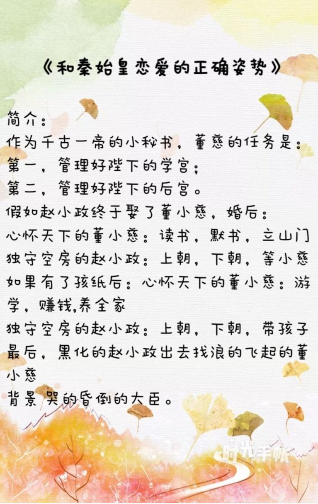 《和秦始皇恋爱的正确姿势》
简介：
作为千古一帝的小秘书，董慈的任务是：
第一，管理好陛下的学宫；
第二，管理好陛下的后宫。
假如赵小政终于娶了董小慈，婚后：
心怀天下的董小慈：读书，默书，立山门
独守空房的赵小政：上朝，下朝，等小慈
如果有了孩纸后：心怀天下的董小慈：游
学，赚钱,养全家
独守空房的赵小政：上朝，下朝，带孩子
最后，黑化的赵小政出去找浪的飞起的董
小慈
背景 哭的昏倒的大臣。